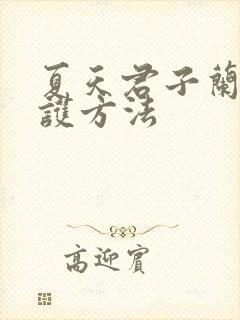 夏天君子蘭
護方法
高迎賓